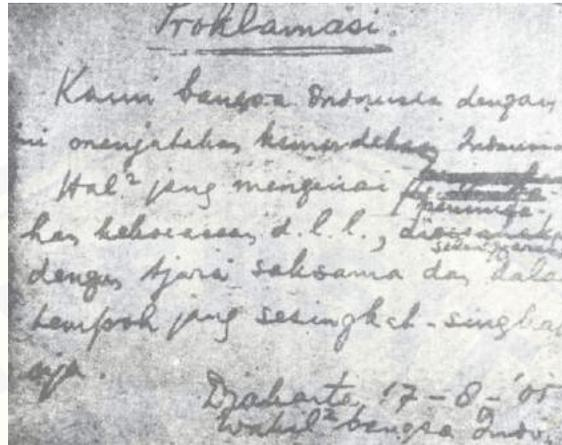 Proklamasi.
Kami bangsa Indonesia dengan
ini menjatakan kemerdekaan Indones
Hal² jang mengenai
peminda-
han kekoeasaan d.l.l.,
diselenggarak
dengan tjara saksama dan dala
tempoh jang sesingkat-singkat
nja.
Djakarta, 17-8-'05
Wakil² bangsa Indo.